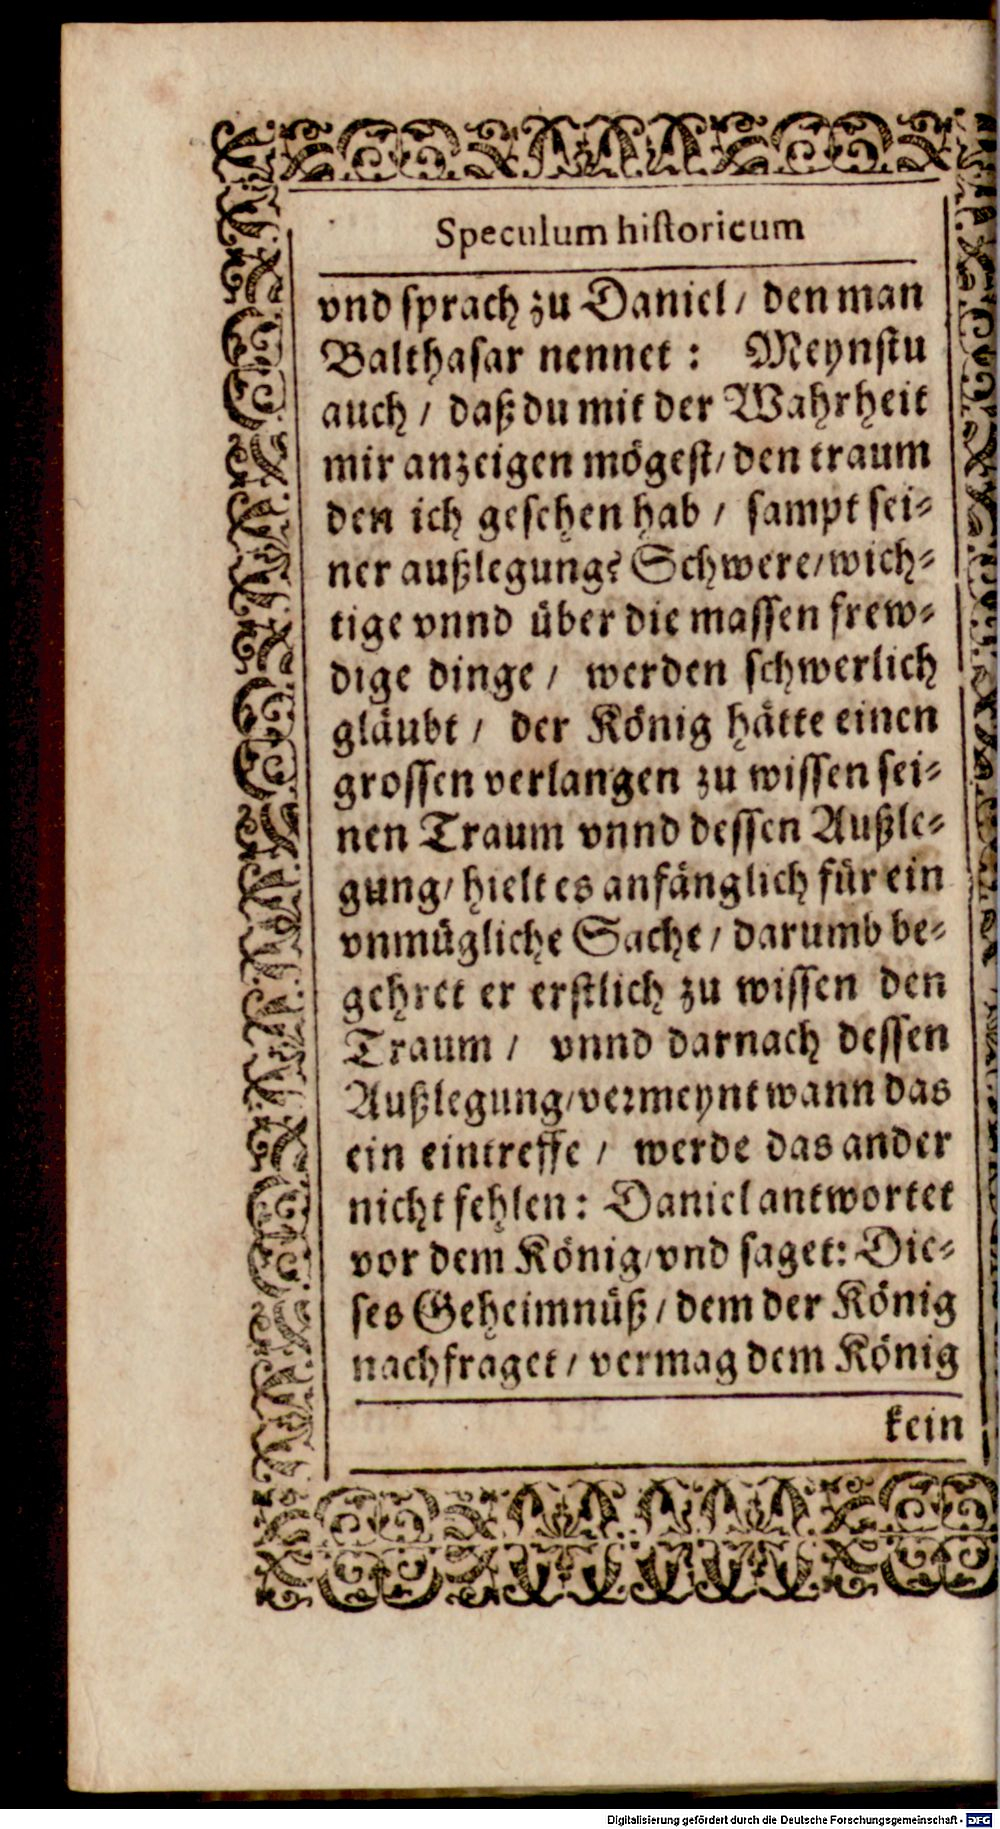 Speculum historicum
vnd sprach zu Daniel / den man
Balthasar nennet : Meynstu
auch / daß du mit der Wahrheit
mir anzeigen mögest / den traum
den ich gesehen hab / sampt sei-
ner außlegung? Schwere / wich-
tige vnnd über die massen frew-
dige dinge / werden schwerlich
gläubt / der König hätte einen
grossen verlangen zu wissen sei-
nen Traum vnnd dessen Außle-
gung / hielt es anfänglich für ein
vnmügliche Sache / darumb be-
gehret er erstlich zu wissen den
Traum / vnnd darnach dessen
Außlegung / vermeynt wann das
ein eintreffe / werde das ander
nicht fehlen : Daniel antwortet
vor dem König / vnd saget: Die-
ses Geheimnüß / dem der König
nachfraget / vermag dem König
kein
Digitalisierung gefördert durch die Deutsche Forschungsgemeinschaft - DFG